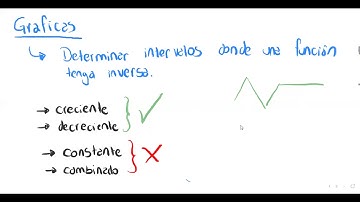 Graficas
↳ Determinar intervalos donde una función
tenga inversa.
→ creciente
→ decreciente
→ constante
→ combinado